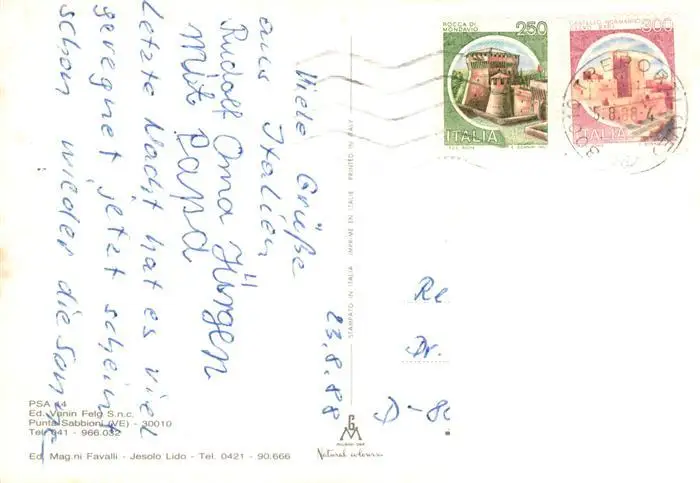 Viele Grüße
aus Italien
Rudolf Oma Jürgen
Mit Papa
Letzte Nacht hat es viel
geregnet jetzt scheint
schon wieder die Sonne
23.8.88
ROCCA DI
MONDAVIO
250
ITALIA
CASTELLO NORMANNO
300
ITALIA
5.8.88-4
STAMPATO IN ITALIA IMPRIME EN ITALIE PRINTED IN ITALY
Re
Dr.
D-8
PSA 14
Ed. Vanin Felg S.n.c.
Punta Sabbioni (VE) - 30010
Tel. 041 - 966.032
Ed. Mag.ni Favalli - Jesolo Lido - Tel. 0421 - 90.666
Natural colours